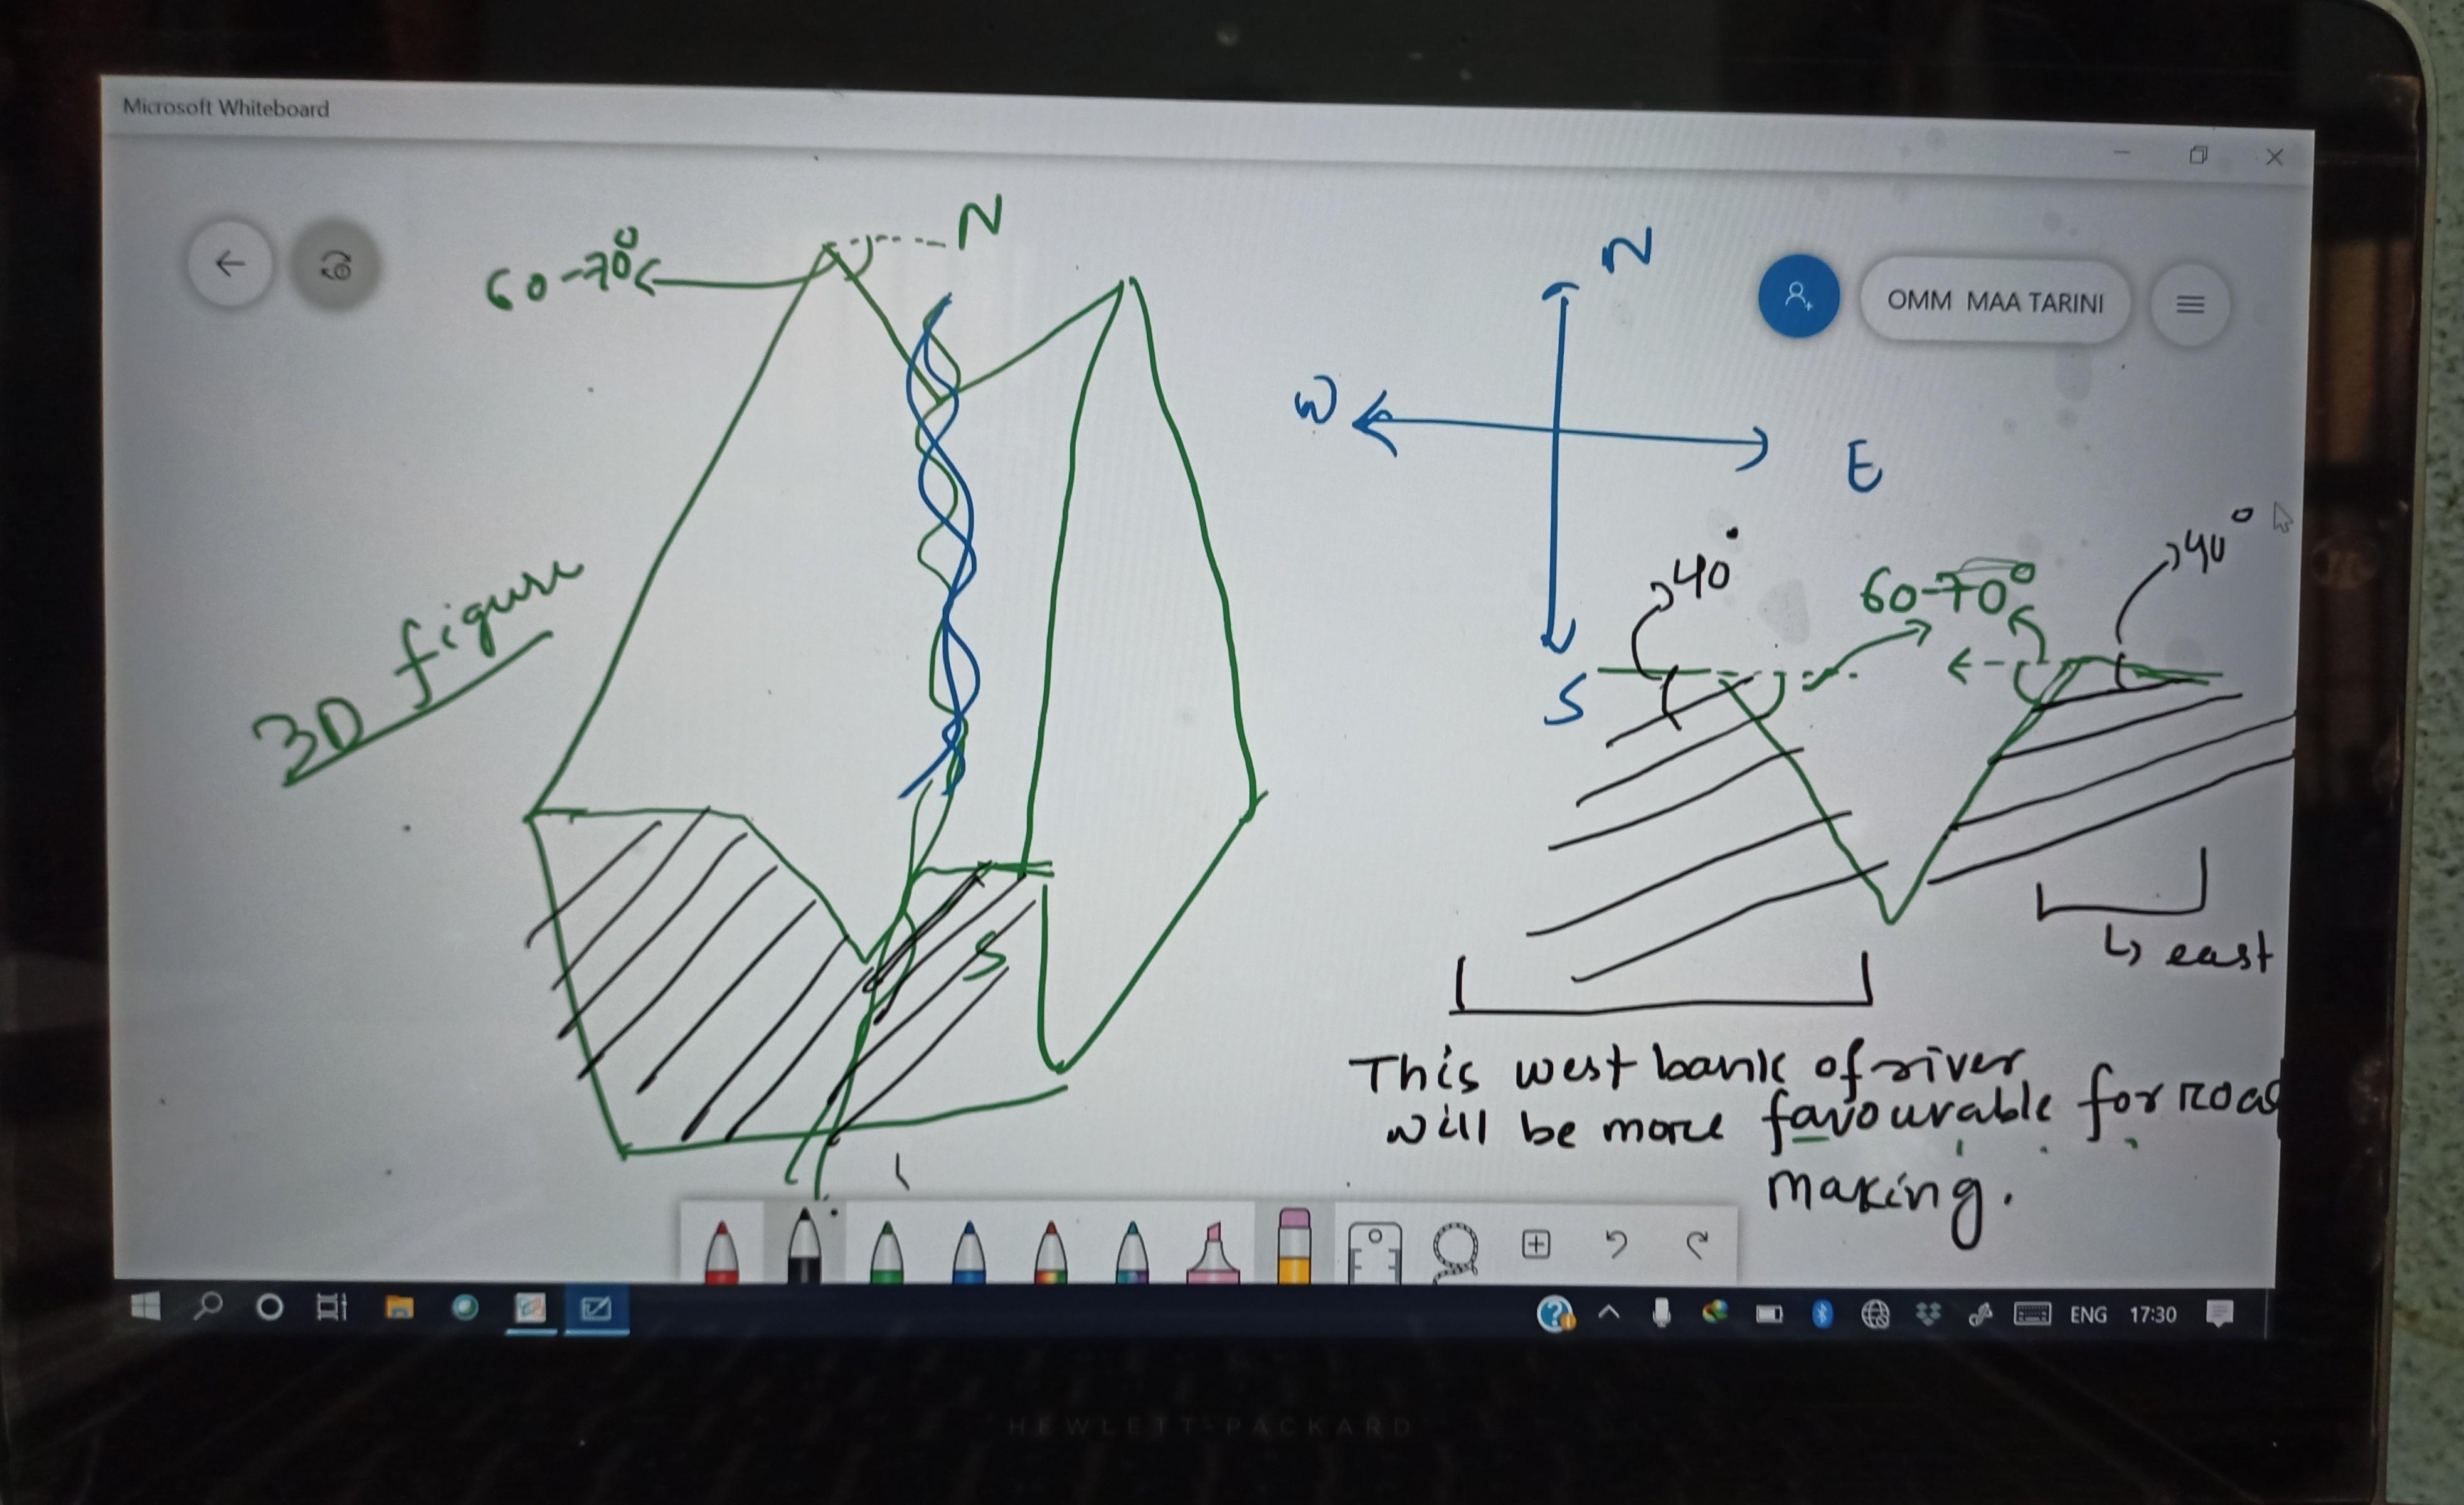 Microsoft Whiteboard
N
60-70°
N
OMM MAA TARINI
W
E
3D figure
40°
60-70°
40°
S
S
east
This west bank of river
will be more favourable for road
making.
ENG 17:30
HEWLETT-PACKARD